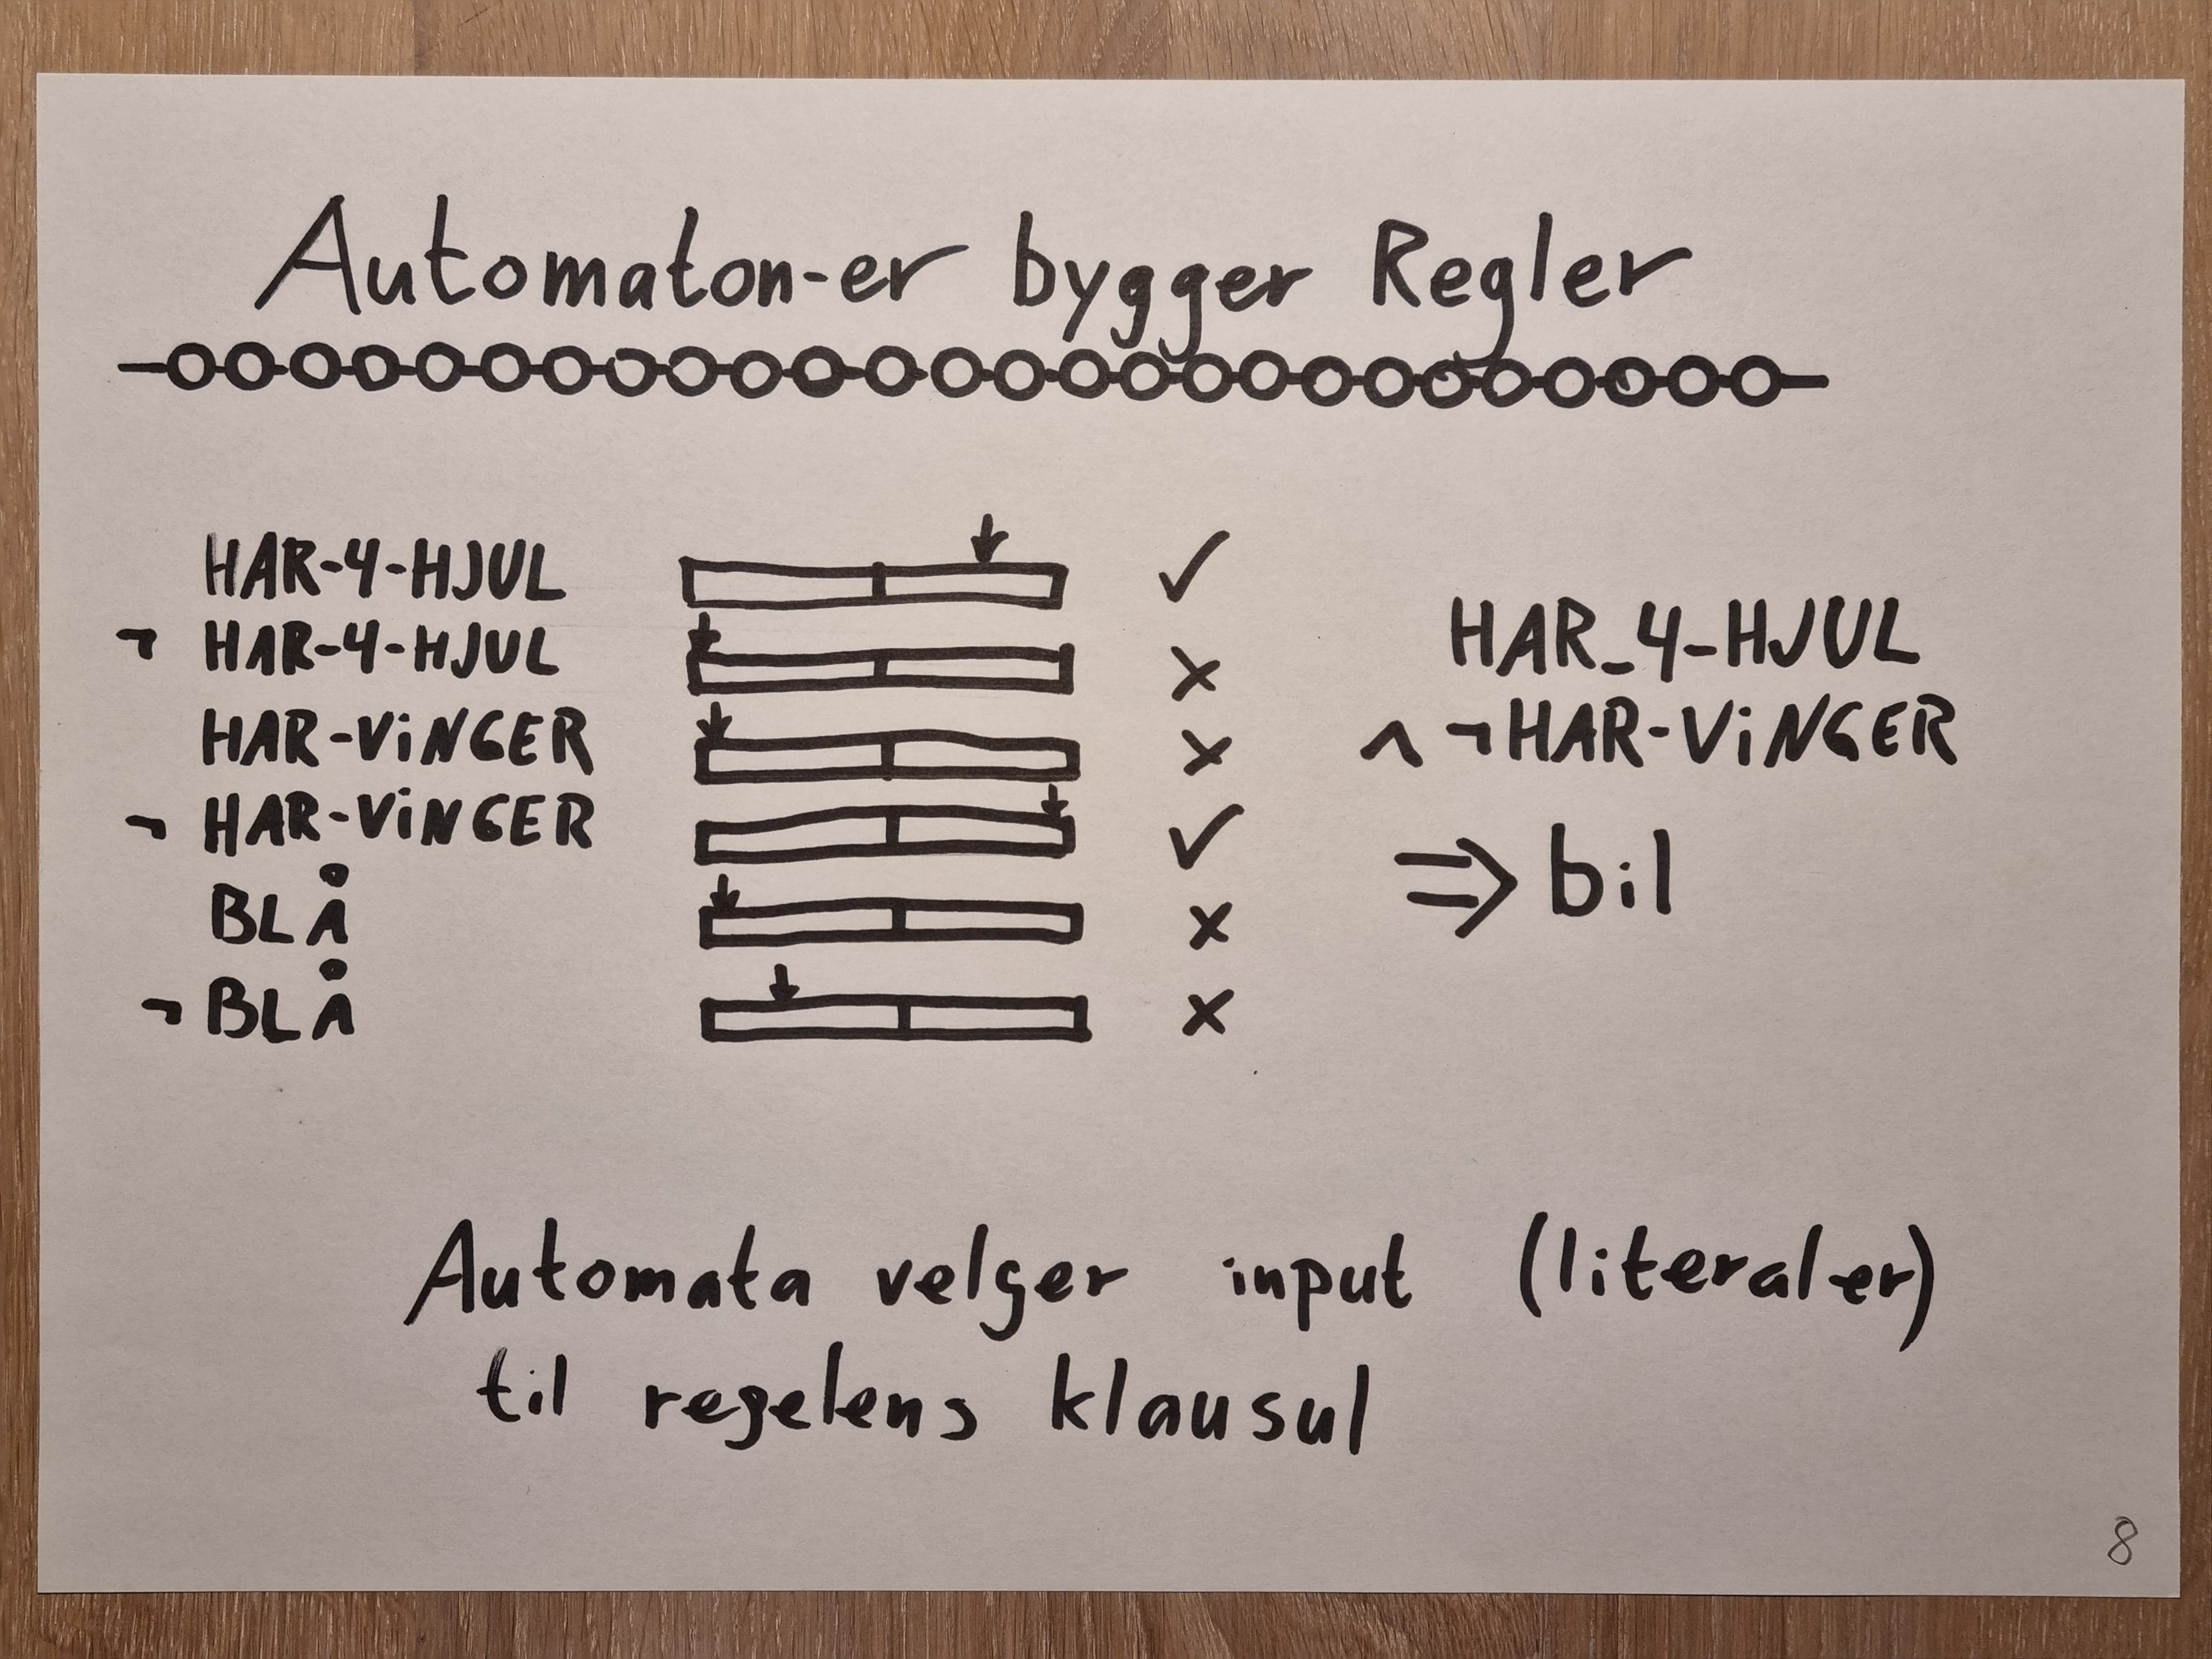 Automaton-er bygger Regler
HAR-4-HJUL ✓
¬ HAR-4-HJUL ×
HAR-ViNGER ×
¬ HAR-ViNGER ✓
BLÅ ×
¬ BLÅ ×
HAR_4-HJUL
∧ ¬HAR-ViNGER
⇒ bil
Automata velger input (literaler)
til regelens klausul
8